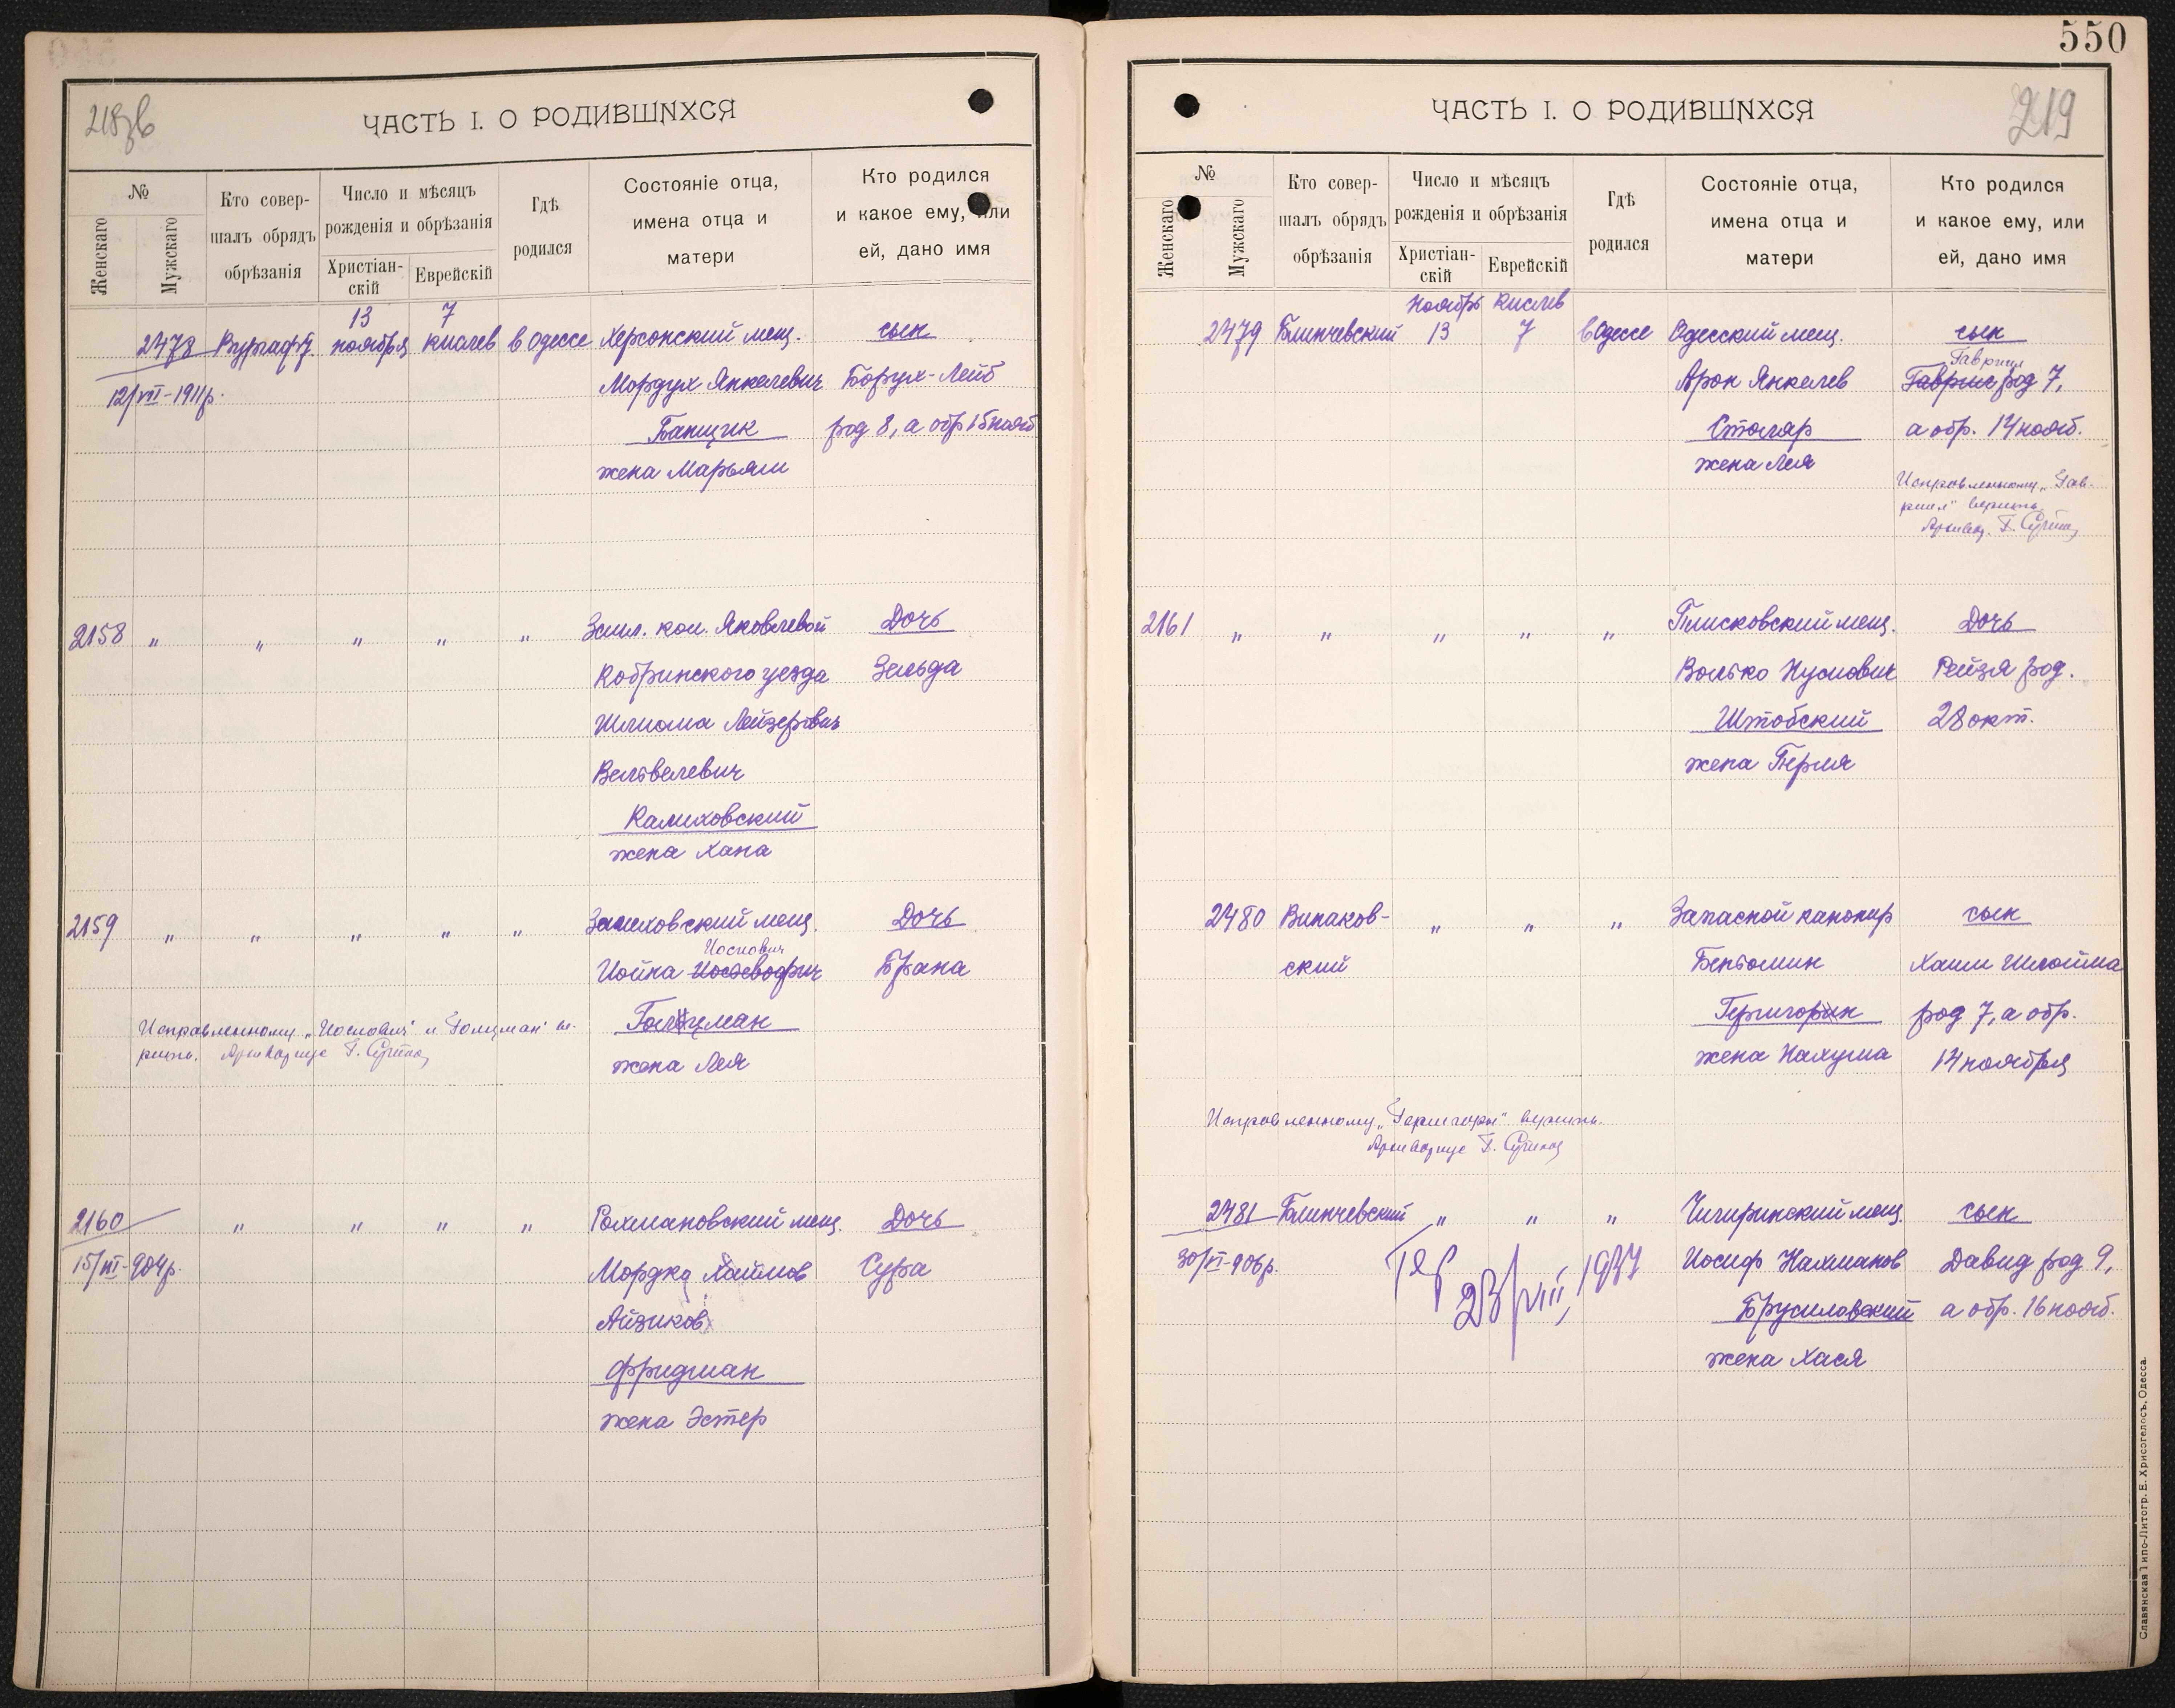 550
218 зв
ЧАСТЬ I. О РОДИВШИХСЯ
№
Женскаго
Мужскаго
Кто совер-
шалъ обрядъ
обрѣзанія
Число и мѣсяцъ
рожденія и обрѣзанія
Христіан-
скій
Еврейскій
Гдѣ
родился
Состояніе отца,
имена отца и
матери
Кто родился
и какое ему, или
ей, дано имя
13 7
2478 ноября кислев в Одессе Херсонский мещ. сын
12/VII-1911 р. Мордух Янкелевич Борух-Лейб
Банщик род 8, а обр 15 нояб
жена Марьям
2158 " " " " " кол. Яковлевой Дочь
Кобринского уезда Зельда
Шлиома Лейзерович
Вельвелевич
Калиховский
жена Хана
2159 " " " " " мещ. Дочь
Иосиович
Иойна Брана
Исправленному „Иосиович" и Голцман ве-
рить. Архивариус Г.
Голцман
жена Лея
2160 " " " " Рохмановский мещ. Дочь
15/III-904 р. Мордко Хаимов Сура
Айзиков
Фридман
жена Эстер
219
ЧАСТЬ I. О РОДИВШИХСЯ
№
Женскаго
Мужскаго
Кто совер-
шалъ обрядъ
обрѣзанія
Число и мѣсяцъ
рожденія и обрѣзанія
Христіан-
скій
Еврейскій
Гдѣ
родился
Состояніе отца,
имена отца и
матери
Кто родился
и какое ему, или
ей, дано имя
ноябрь кислев
2479 Блинчевский 13 7 в Одессе Одесский мещ. сын
Гавриил
Арон Янкелев Гаврил род 7,
Столяр а обр. 14 нояб.
жена Лея
Исправленному „Гав-
риил" верить
Архивар. Г.
2161 " " " " " Плисковский мещ. Дочь
Волько Нусиович Рейзя род.
Штобский 28 окт.
жена Перля
2480 Винаков- " " " Запасной канонир сын
ский Беньомин Хаим Шлойма
Геригорин род 7, а обр.
жена Нахума 14 ноября
Исправленному „Геригорн" верить.
Архивариус Г.
2481 Блинчевский " " " Чигиринский мещ. сын
30/VI-906 р. 23/VIII, 1937 Иосиф Нахманов Давид род 9,
Брусиловский а обр. 16 нояб.
жена Хася
Славянская Типо-Литогр. Е. Хрисогелосъ, Одесса.